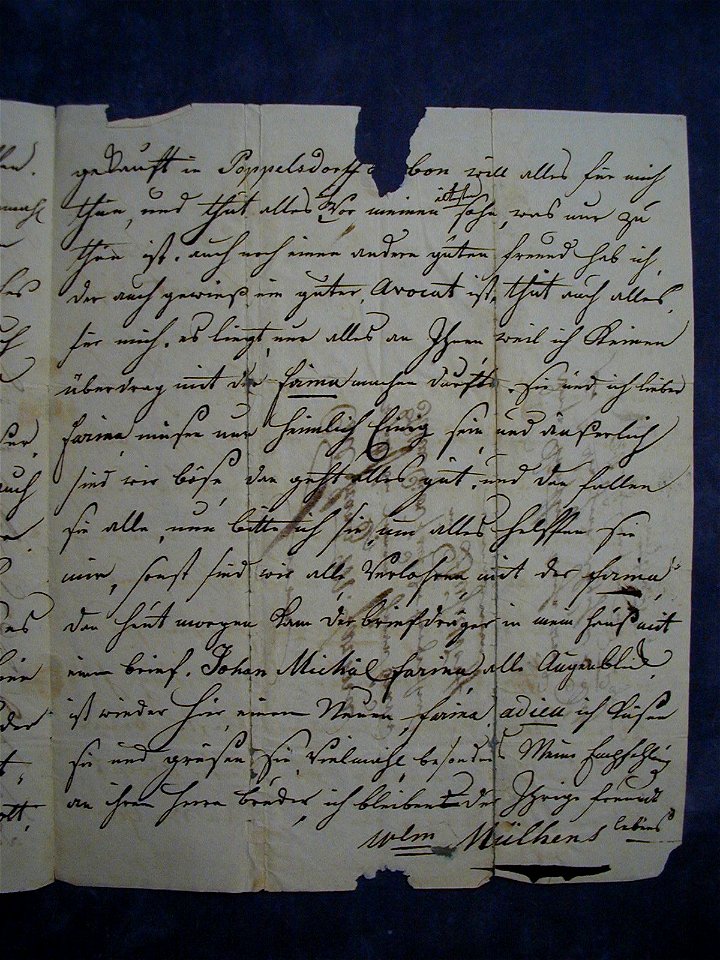 gekauft in Poppelsdorff bon will alles für mich
thun, und thut alles Vor meinen sohn, was nur zu
thun ist. auch noch einen andern guten freund hab ich,
der auch gewieß ein guter Avocat ist, thut auch alles
für mich. es liegt nur alles an Ihnen, weil ich Keinen
überdrag mit der farina machen durfte. sie und ich lieber
farina, müsen nur heimlich Einig sein und äußerlich
sind wir böse, dan geht alles gut. und dan fallen
sie alle, nun bitte ich sie, um alles helffen sie
mir, sonst sind wir alle Verlohren mit der farina
dan heut morgen kam der briefdräger in mein Hauß mit
einem brief. Johan Michäl farina, alle Augenblick
ist wieder hier einem Neuen farina adieu ich küsen
sie und grüsen sie Vielmahl, besonders Meine Empfehlung
an ihren Herrn bruder, ich bleibe der Ihrige freund
wlm Mülhens lebens
llen.
mahl
es
ch
ser,
auch
es
der
t-
ott,